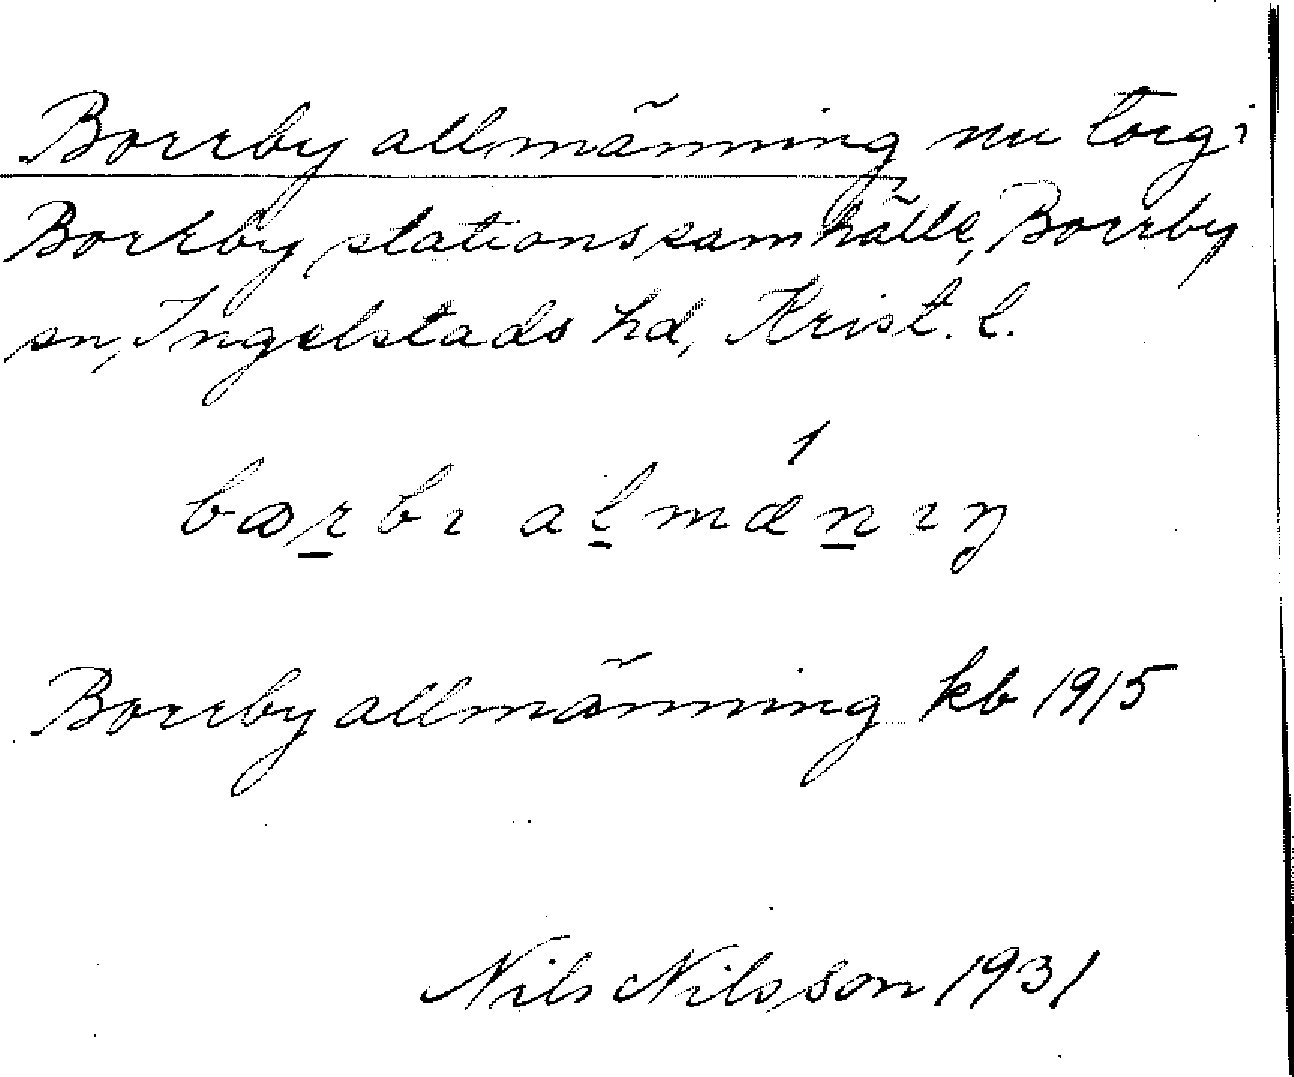 Borrby allmänning nu torg i
Borrby stationssamhälle, Borrby
sn, Ingelstads hd, Krist. l.
bɷrbɪ almǽnɪŋ
Borrby allmänning kb 1915
Nils Nilsson 1931